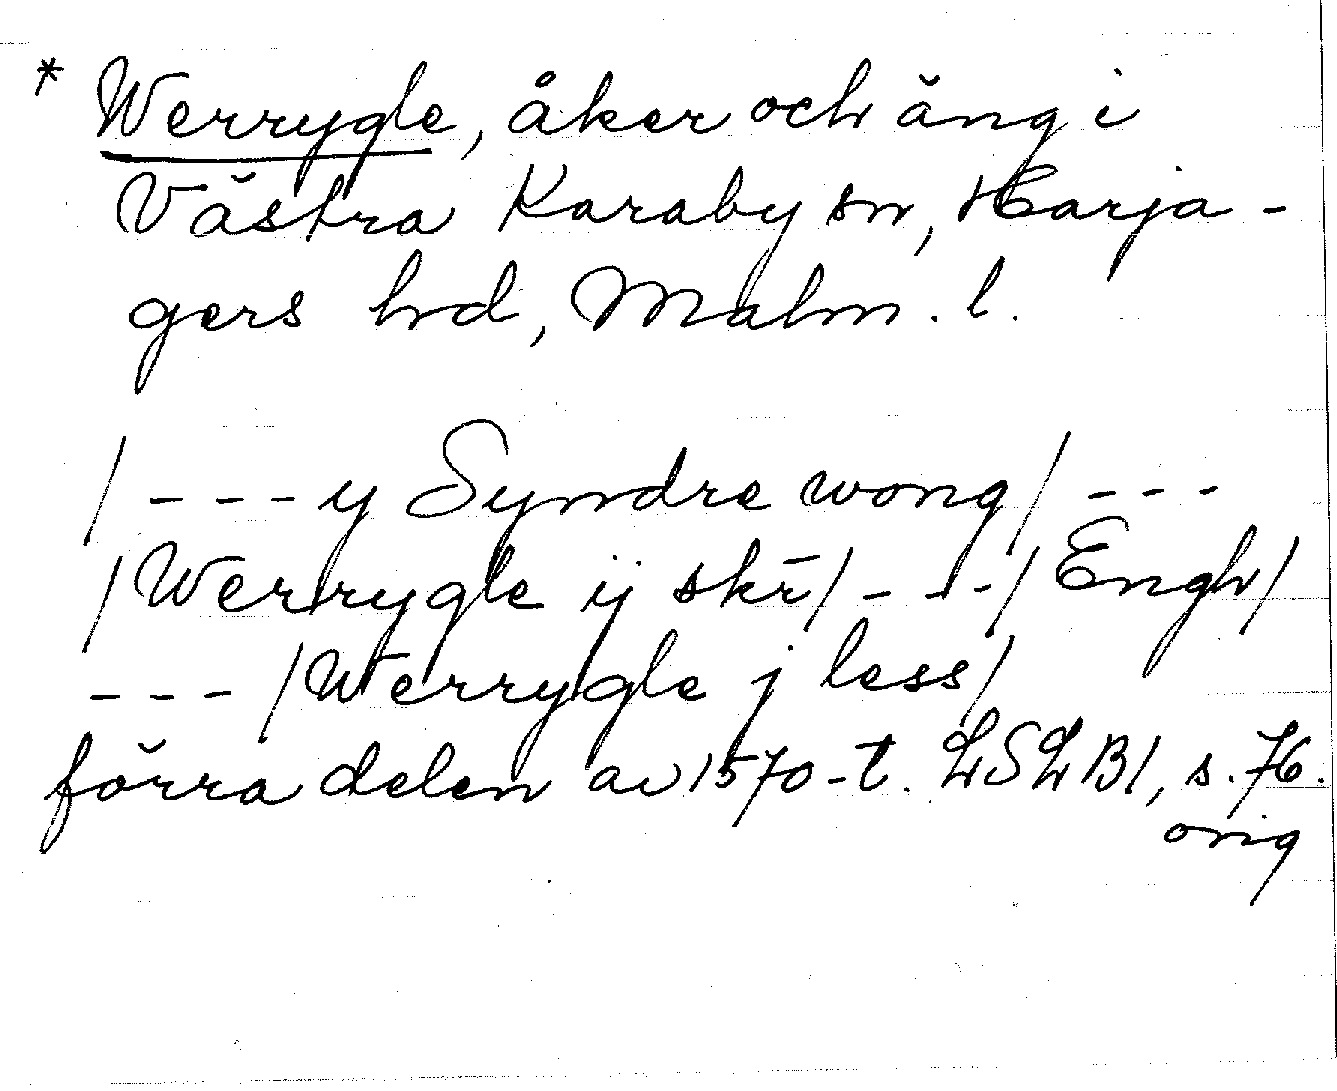 * Werrygle, åker och äng i
Västra Karaby sn, Harja-
gers hd, Malm. l.
/---y Syndre wong/ ---
/Werrygle ij skr̄/ ---/Engh/
--- /Werrygle j less/
förra delen av 1570-t. LSLB1, s. 76.
orig